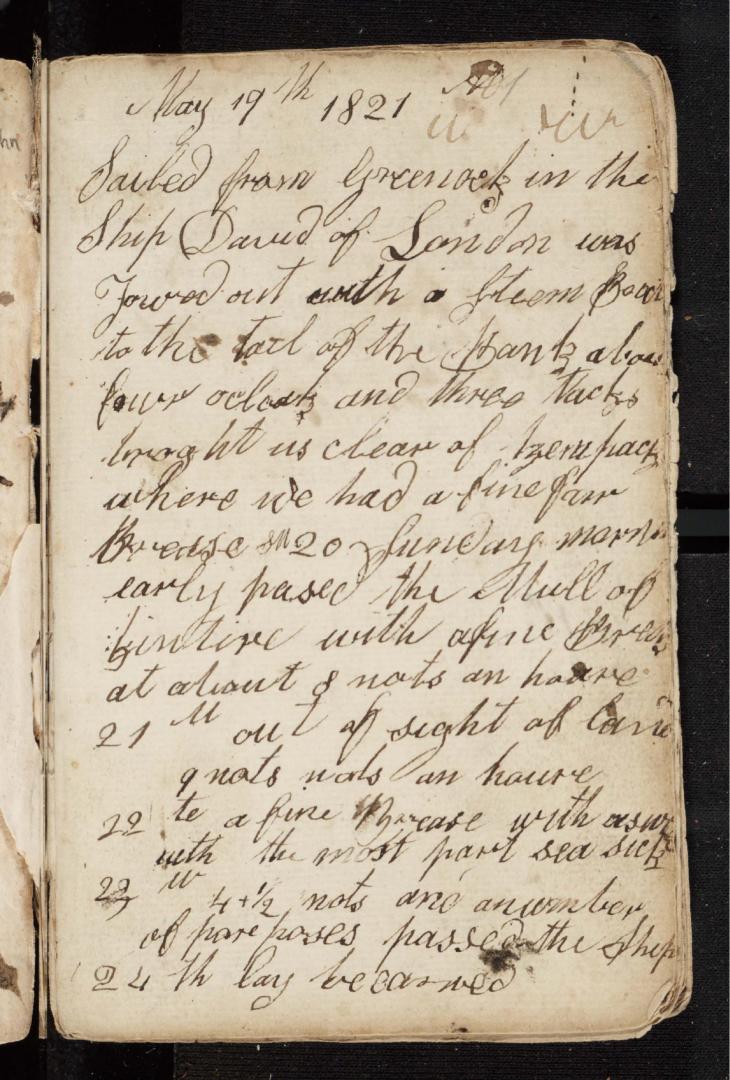 May 19th 1821 No 1
Sailed from Greenock in the
Ship David of London was
Towed out with a Steem Boat
to the tail of the Bank abou
fowr oclock and three tacks
broght us clear of
where we had a fine fair
Brease SM 20 Sunday morn
early pased the Mull of
Kintire with a fine Breas
at about 8 nots an houre
21 M out of sight of land
9 nots nots an houre
22 te a fine Brease with a sw
with the most part sea sick
23 W 4+½ nots and anumber
of pareposes passed the Ship
24 th lay becarmed